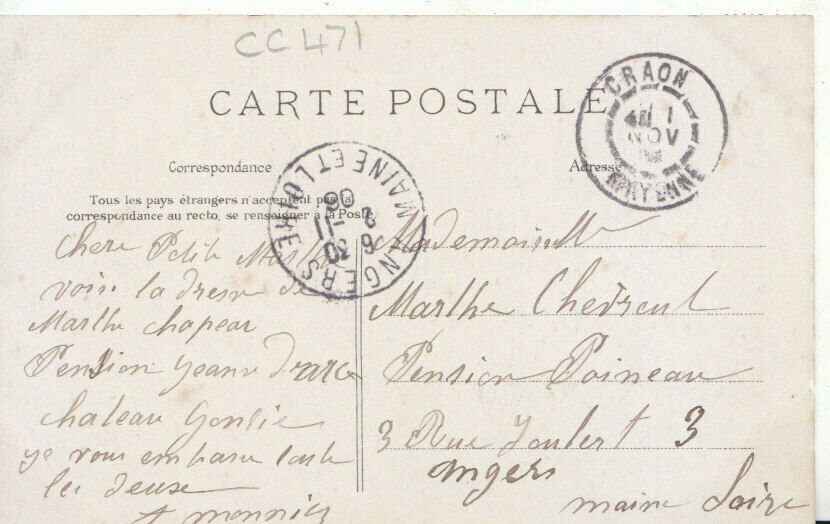 CC471
CARTE POSTALE
CRAON
1
NOV
MAYENNE
Correspondance
Adresse
Tous les pays étrangers n'acceptent pas la
correspondance au recto, se renseigner à la Poste.
ANGERS MAINE ET LOIRE
9 30
2 - 11
08
Chere Petite
voisi la dresse de
Marthe chapeau
Pension jeanne d'arc
chateau Gontie
je vous embrasse toute
les deuse
Mademoiselle
Marthe Chevreul
Pension Poineau
3 Rue Joubert 3
angers
maine Loire